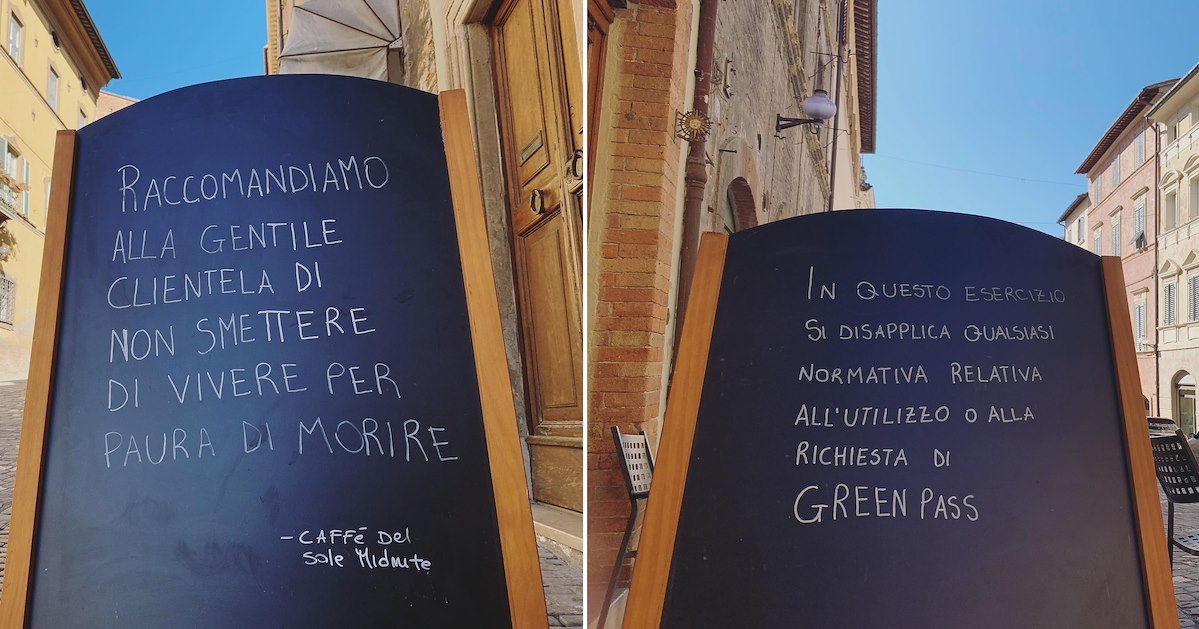 RACCOMANDIAMO
ALLA GENTILE
CLIENTELA DI
NON SMETTERE
DI VIVERE PER
PAURA DI MORIRE
- CAFFÉ Del
Sole Midnute
IN QUESTO ESERCIZIO
SI DISAPPLICA QUALSIASI
NORMATIVA RELATIVA
ALL'UTILIZZO O ALLA
RICHIESTA DI
GREEN PASS